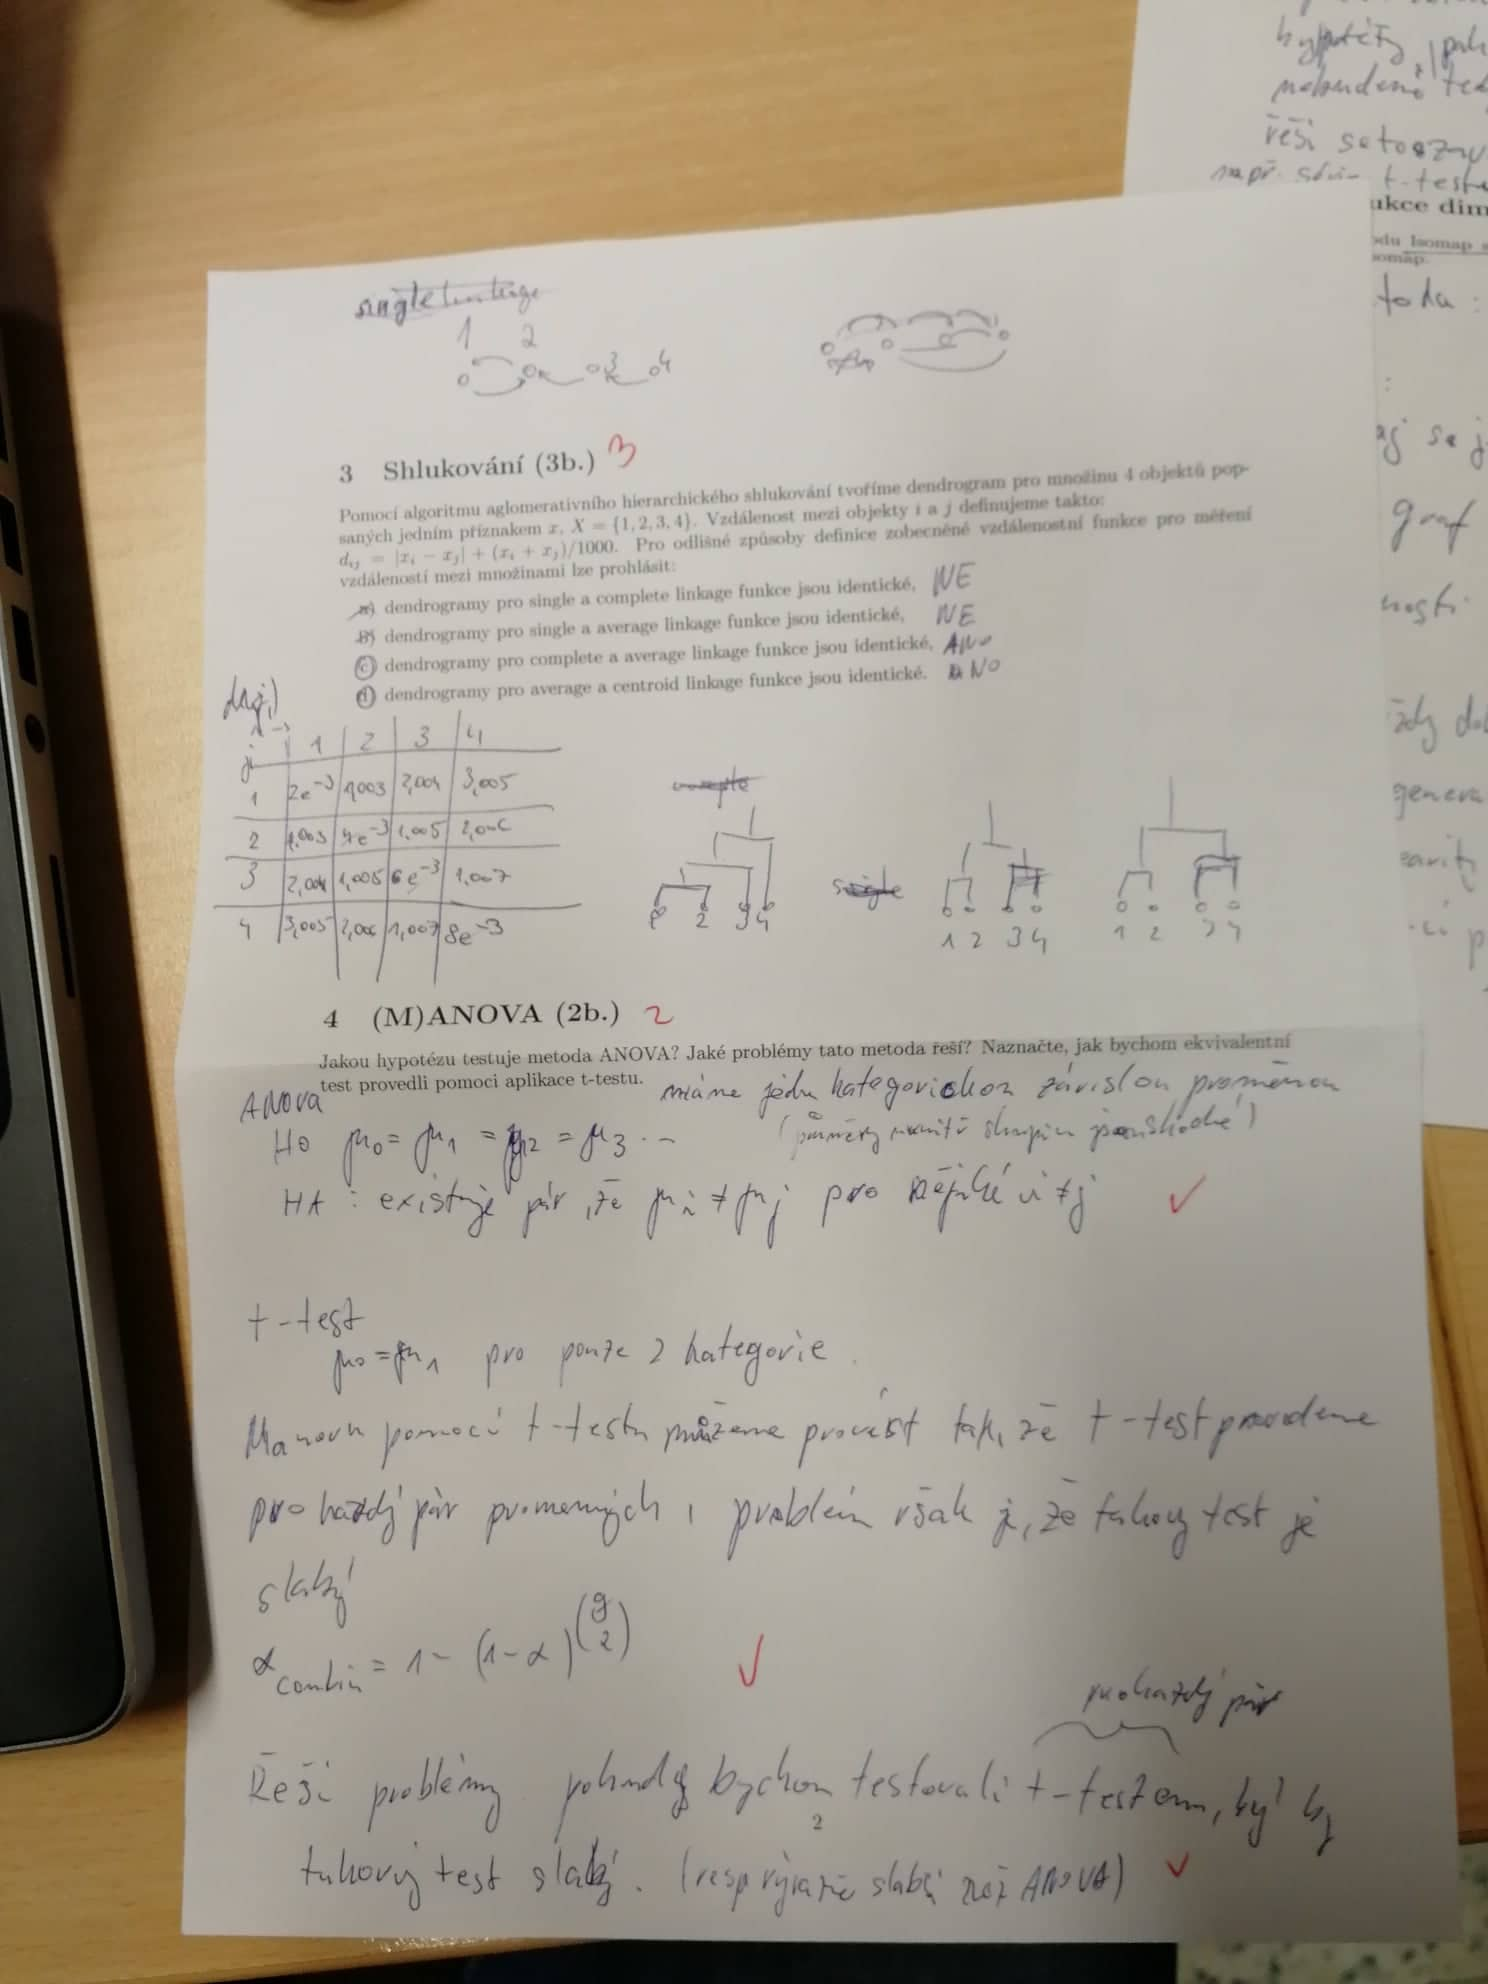 hypotézy, pak
řeší
např. t-testu
ukce dim
odu Isomap s
somap.
toda :
:
se j
graf
nosti
vždy
genera
single linkage
1 2
3 4
3 Shlukování (3b.) 3
Pomocí algoritmu aglomerativního hierarchického shlukování tvoříme dendrogram pro množinu 4 objektů pop-
saných jedním příznakem x, X = {1, 2, 3, 4}. Vzdálenost mezi objekty i a j definujeme takto:
d_ij = |x_i − x_j| + (x_i + x_j)/1000. Pro odlišné způsoby definice zobecněné vzdálenostní funkce pro měření
vzdáleností mezi množinami lze prohlásit:
a) dendrogramy pro single a complete linkage funkce jsou identické, NE
b) dendrogramy pro single a average linkage funkce jsou identické, NE
c) dendrogramy pro complete a average linkage funkce jsou identické, ANO
d) dendrogramy pro average a centroid linkage funkce jsou identické. ANO
d(i,j)
i →
j 1 2 3 4
1 2e⁻³ 1,003 2,004 3,005
2 1,003 4e⁻³ 1,005 2,006
3 2,004 1,005 6e⁻³ 1,007
4 3,005 2,006 1,007 8e⁻³
complete
1 2 3 4
single
1 2 3 4
1 2 3 4
4 (M)ANOVA (2b.) 2
Jakou hypotézu testuje metoda ANOVA? Jaké problémy tato metoda řeší? Naznačte, jak bychom ekvivalentní
test provedli pomoci aplikace t-testu.
máme jednu kategorickou závislou proměnou
ANOVA
(průměry uvnitř skupin jsou shodné)
H0 μ0 = μ1 = μ2 = μ3 ...
HA : existuje pár, že μi ≠ μj pro nějaké i ≠ j
t-test
μ0 = μ1 pro pouze 2 kategorie.
Manovu pomocí t-testu můžeme provést tak, že t-test provedeme
pro každý pár promenných, problém však je, že takový test je
slabý
α combin = 1 − (1 − α)^(g 2)
pro každý pár
Řeší problémy pokud bychom testovali t-testem, byl by
2
takový test slabý. (resp výrazně slabší než ANOVA)